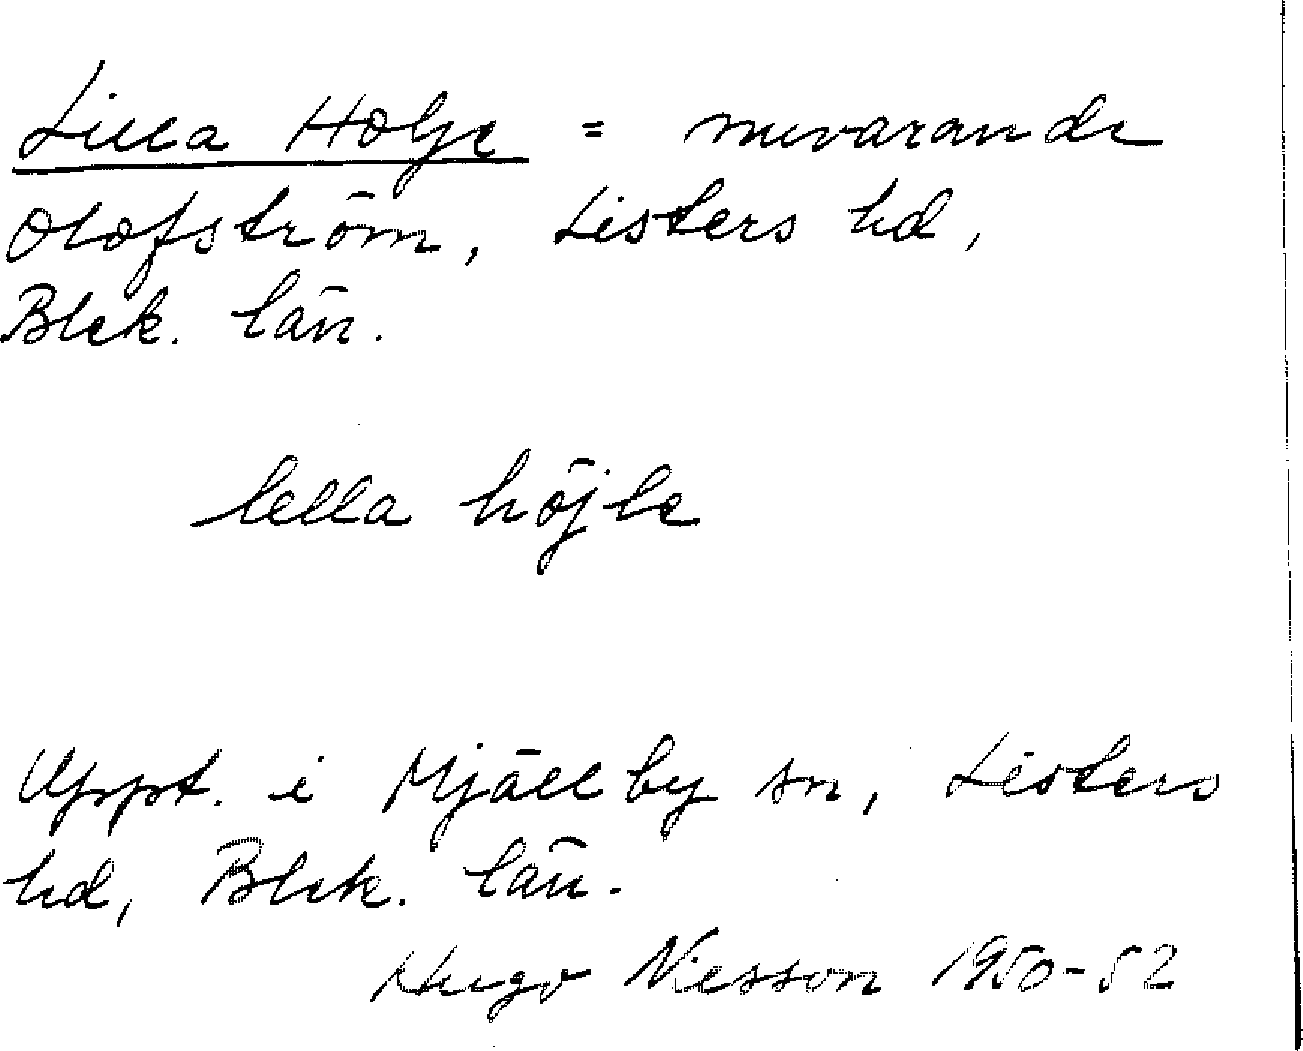 Lilla Holje = nuvarande
Olofström, Listers hd,
Blek. län.
lella höjle
Uppt. i Mjällby sn, Listers
hd, Blek. län.
Hugo Nilsson 1950-52